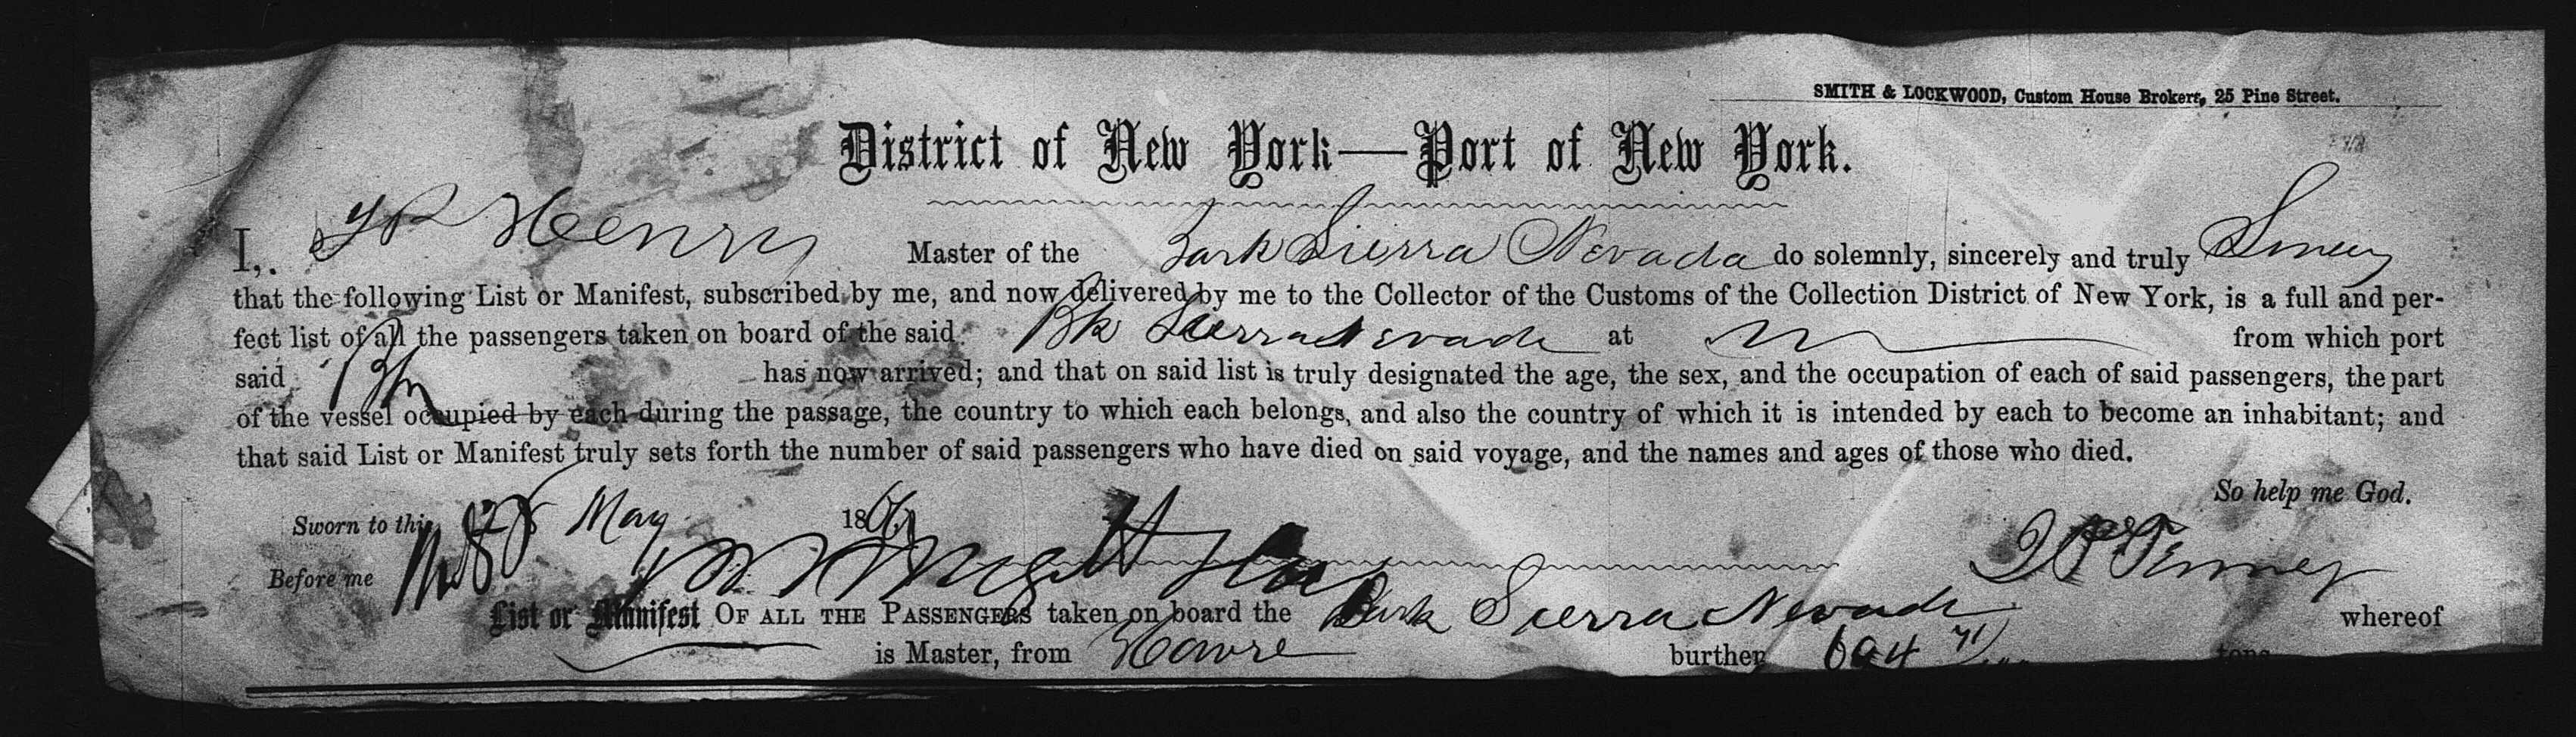 SMITH & LOCKWOOD, Custom House Brokers, 25 Pine Street.
District of New York—Port of New York.
I, Henry Master of the Bark Sierra Nevada do solemnly, sincerely and truly Swear
that the following List or Manifest, subscribed by me, and now delivered by me to the Collector of the Customs of the Collection District of New York, is a full and per-
fect list of all the passengers taken on board of the said Bk Sierra Nevada at from which port
said Bk has now arrived; and that on said list is truly designated the age, the sex, and the occupation of each of said passengers, the part
of the vessel occupied by each during the passage, the country to which each belongs, and also the country of which it is intended by each to become an inhabitant; and
that said List or Manifest truly sets forth the number of said passengers who have died on said voyage, and the names and ages of those who died.
So help me God.
Sworn to this 28 May 186
Before me
List or Manifest OF ALL THE PASSENGERS taken on board the Bark Sierra Nevada whereof
is Master, from Havre burthen 694 71/ tons